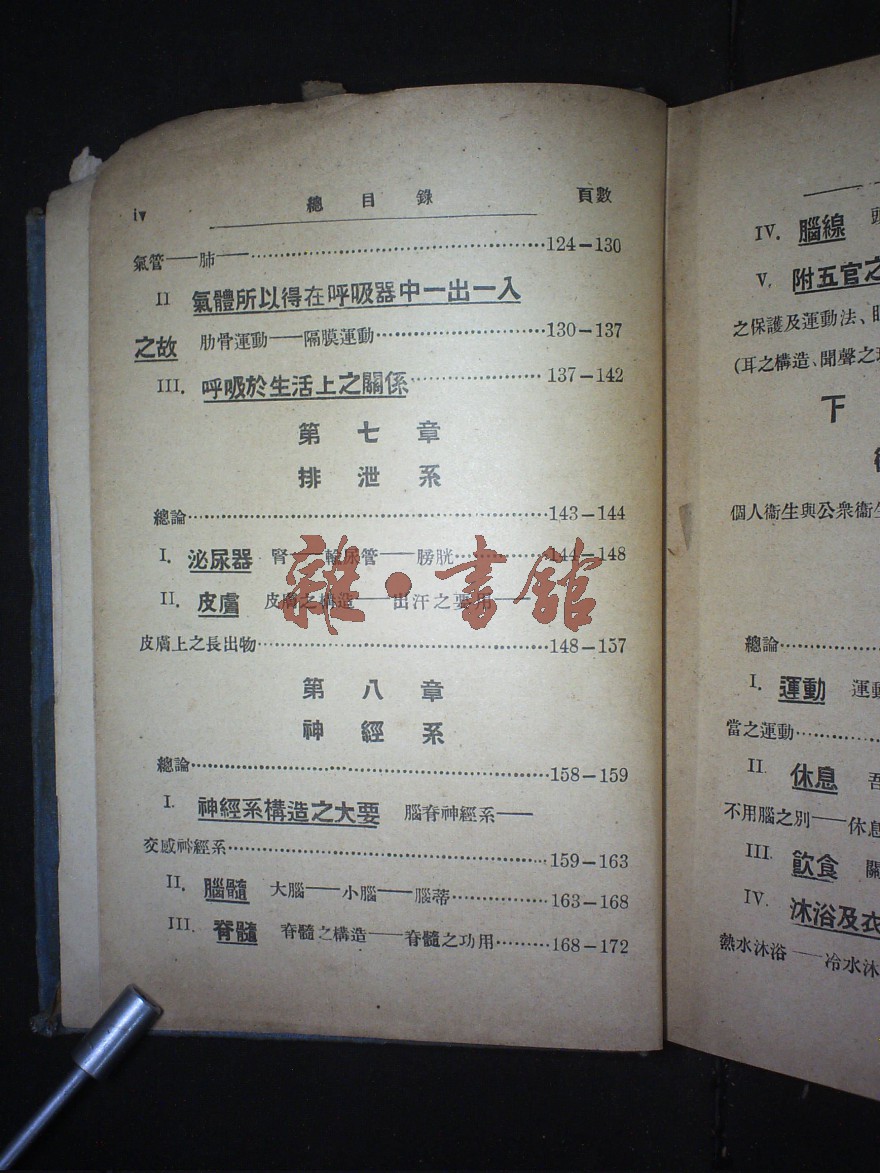 iv 總目錄 頁數
氣管——肺——……124-130
II 氣體所以得在呼吸器中一出一入
之故 肋骨運動——隔膜運動……130-137
III. 呼吸於生活上之關係……137-142
第七章
排泄系
總論……143-144
I. 泌尿器 腎——輸尿管——膀胱……144-148
II. 皮膚 皮膚之構造——出汗之要用——
皮膚上之長出物……148-157
第八章
神經系
總論……158-159
I. 神經系構造之大要 腦脊神經系——
交感神經系……159-163
II. 腦髓 大腦——小腦——腦蒂……163-168
III. 脊髓 脊髓之構造——脊髓之功用……168-172
雜·書館
IV. 腦線
V. 附五官之
之保護及運動法、
(耳之構造、聞聲之
下
個人衛生與公衆衛生
總論……
I. 運動 運動
當之運動……
II. 休息
不用腦之別——休息
III. 飲食
IV. 沐浴及衣
熱水沐浴——冷水沐